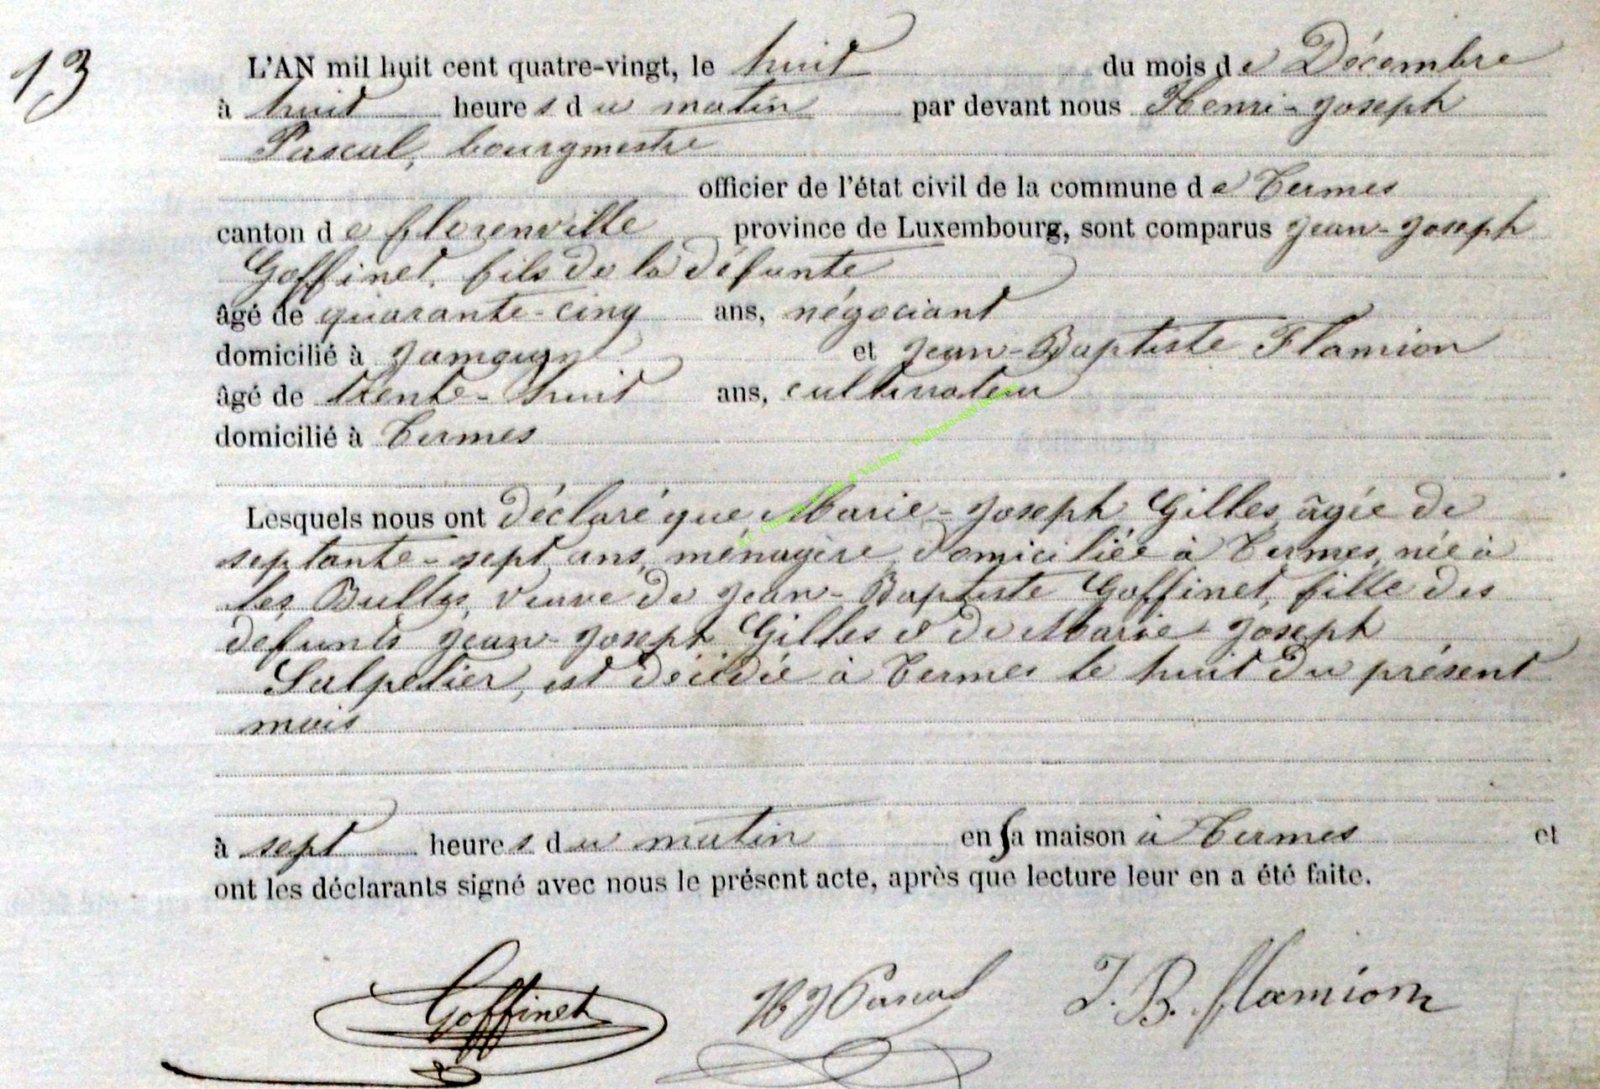 13
L'AN mil huit cent quatre-vingt, le huit du mois de Décembre
à huit heures du matin par devant nous Henri-Joseph
Pascal, bourgmestre
officier de l'état civil de la commune de Termes
canton de florenville province de Luxembourg, sont comparus Jean-Joseph
Goffinet, fils de la défunte
âgé de quarante-cinq ans, négociant
domicilié à Jamoigne et Jean-Baptiste Flamion
âgé de trente-huit ans, cultivateur
domicilié à Termes
Lesquels nous ont déclaré que Marie-Joseph Gilles, âgée de
septante-sept ans, ménagère domiciliée à Termes, née à
les Bulles, veuve de Jean-Baptiste Goffinet, fille des
défunts Jean-Joseph Gilles et de Marie-Joseph
Salpetier, est décédée à Termes le huit du présent
mois
à sept heures du matin en sa maison à Termes et
ont les déclarants signé avec nous le présent acte, après que lecture leur en a été faite.
Goffinet HJ Pascal J.B. flamion